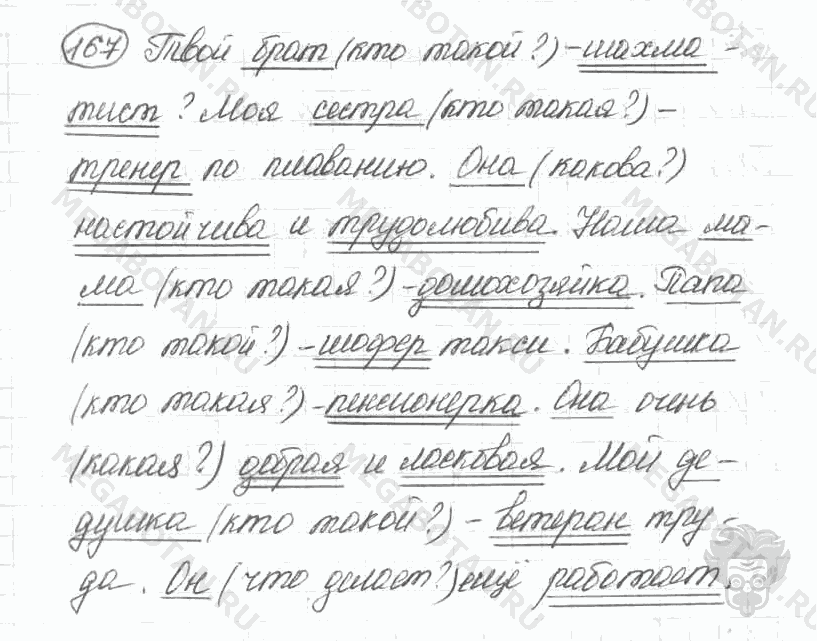 167 Твой брат (кто такой?) – шахма-
тист? Моя сестра (кто такая?) –
тренер по плаванию. Она (какова?)
настойчива и трудолюбива. Наша ма-
ма (кто такая?) – домохозяйка. Папа
(кто такой?) – шофер такси. Бабушка
(кто такая?) – пенсионерка. Она очень
(какая?) добрая и ласковая. Мой де-
душка (кто такой?) – ветеран тру-
да. Он (что делает?) ещё работает.
MEGABOTAN.RU